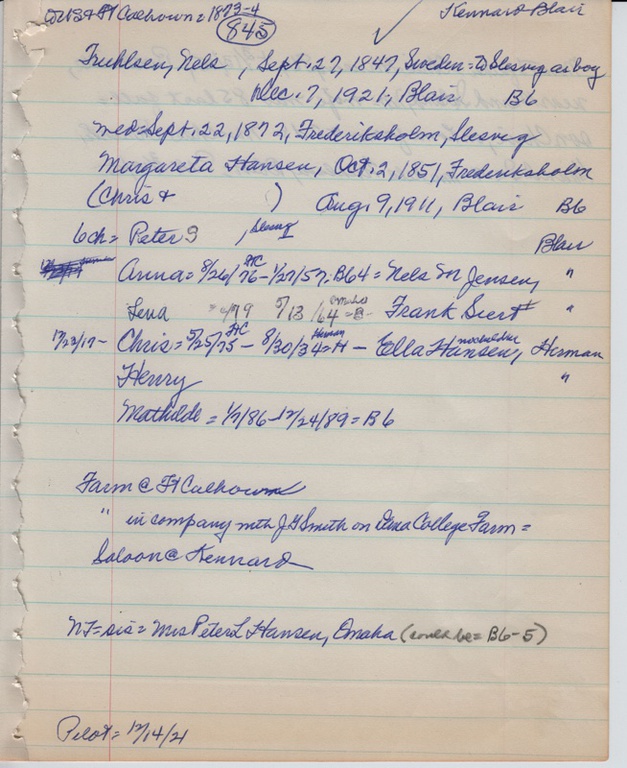 US & Ft Calhoun = 1873-4
845
Kennard Blair
Truhlsen, Nels, Sept. 27, 1847, Sweden = To Slesvig as boy
Dec. 7, 1921, Blair B6
med = Sept. 22, 1872, Frederiksholm, Slesvig
Margareta Hansen, Oct. 2, 1851, Frederiksholm
(Chris & ) Aug. 9, 1911, Blair B6
6ch = Peter S , Slesvig Blair
Anna = 8/26/76 - 1/27/57 - B64 = Nels M Jensen, "
FC
Lena 79 5/13/64 = B - Frank Siert "
Omaha
12/23/17 - Chris = 5/25/75 - 8/30/34 = H - Ella Hansen, Herman
FC Herman no children
Henry "
Mathilde = 1/7/86 - 12/24/89 = B6
Farm @ Ft Calhoun
" in company with J G Smith on Dana College Farm =
Saloon @ Kennard
NT = sis = Mrs Peter L Hansen, Omaha (could be = B6-5)
Pilot = 12/14/21